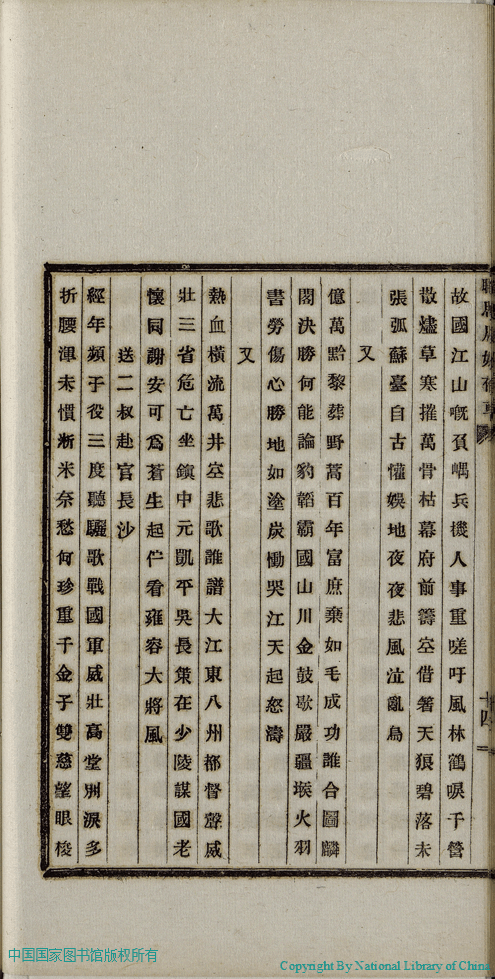 十四
故國江山嘅負嵎兵機人事重嗟吁風林鶴唳千營
散燼草寒摧萬骨枯幕府前籌空借箸天狼碧落未
張弧蘇臺自古懽娛地夜夜悲風泣亂烏
又
億萬黔黎葬野蒿百年富庶棄如毛成功誰合圖麟
閣決勝何能論豹韜霸國山川金鼓歇嚴疆堠火羽
書勞傷心勝地如塗炭慟哭江天起怒濤
又
熱血橫流萬井空悲歌誰譜大江東八州都督聲威
壯三省危亡坐鎭中元凱平吳長策在少陵謀國老
懷同謝安可爲蒼生起佇看雍容大將風
送二叔赴官長沙
經年頻于役三度聽驪歌戰國軍威壯高堂別淚多
折腰渾未慣淅米奈愁何珍重千金子雙慈望眼梭
中国国家图书馆版权所有
Copyright By National Library of China